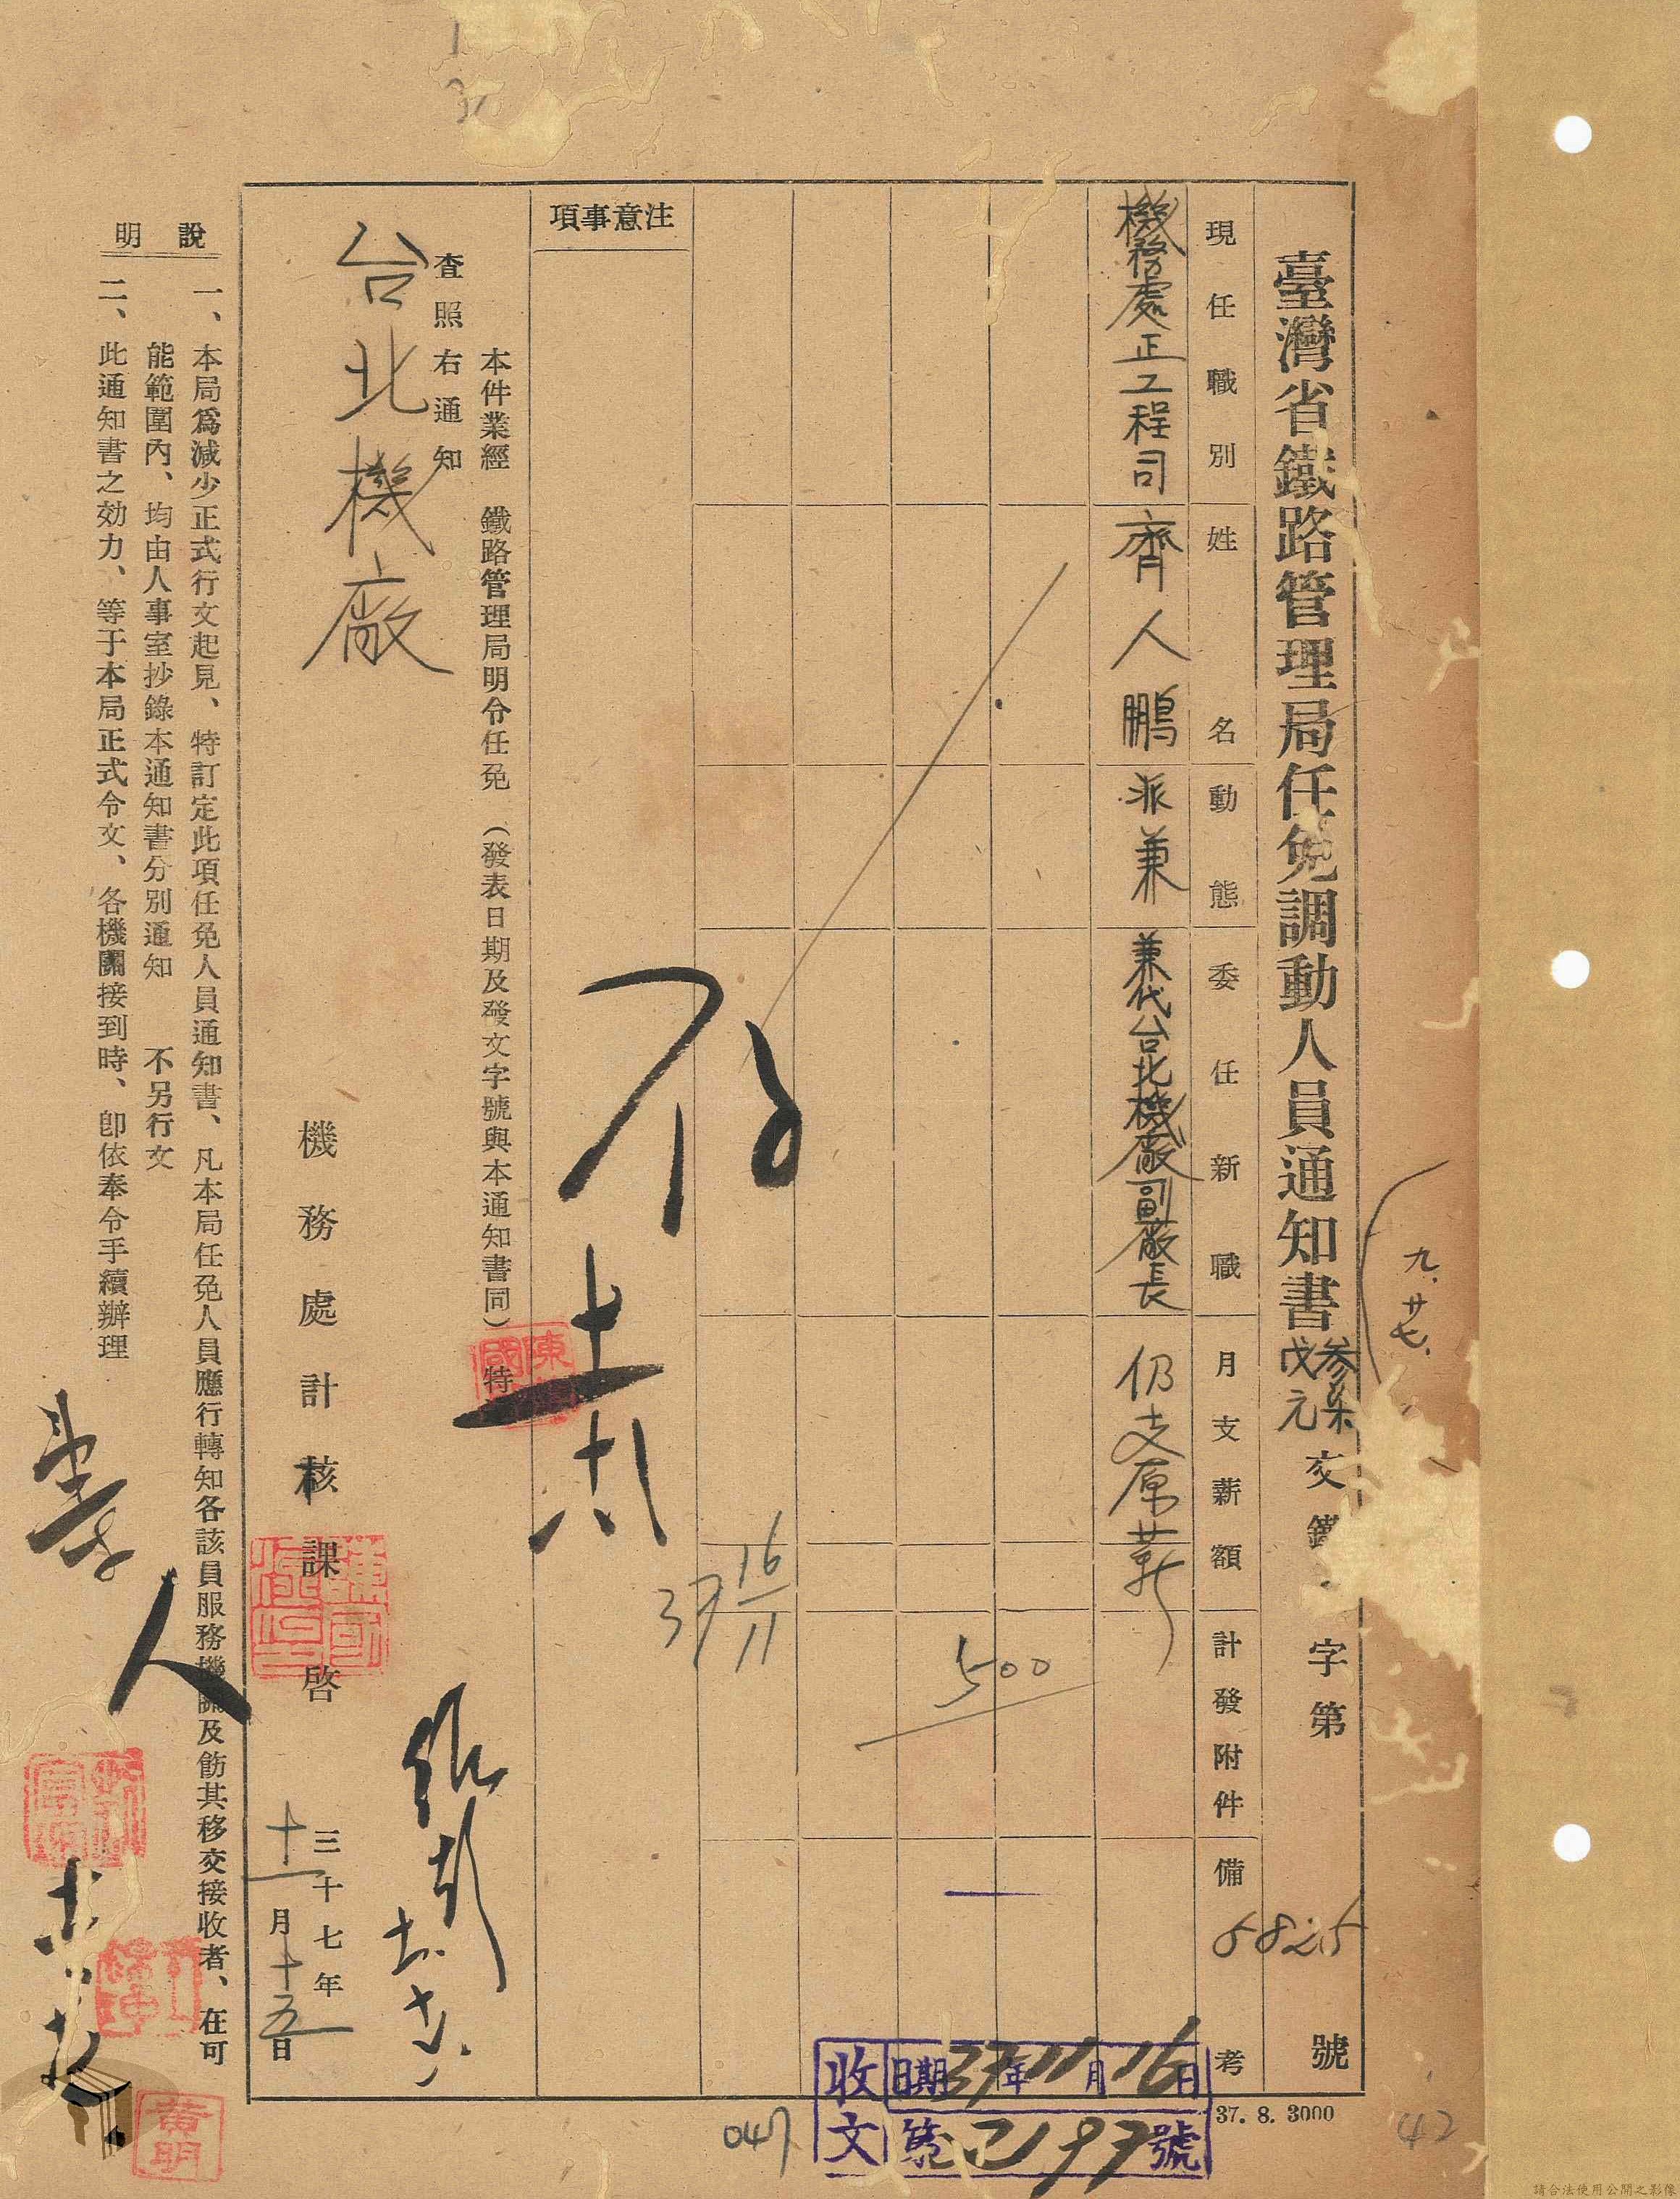 臺灣省鐵路管理局任免調動人員通知書
戊元
交鐵
字第
5825
號
九.廿七.
現任職別
姓名
動態
委任新職
月支薪額
計發附件
備考
機務處正工程司
齊人鵬
派兼
兼代台北機廠副廠長
仍支原薪
500
37 16/11
注意事項
存
本件業經 鐵路管理局明令任免 （發表日期及發文字號與本通知書同） 特
查照右通知
台北機廠
機務處計核課啓
三十七年
十一月十五日
說明
一、本局爲減少正式行文起見、特訂定此項任免人員通知書、凡本局任免人員應行轉知各該員服務機關及飭其移交接收者、在可
能範圍內、均由人事室抄錄本通知書分別通知 不另行文
二、此通知書之効力、等于本局正式令文、各機關接到時、卽依奉令手續辦理
人
收文
日期37年11月16日
第2197號
37. 8. 3000
047
42
黃明
請合法使用公開之影像